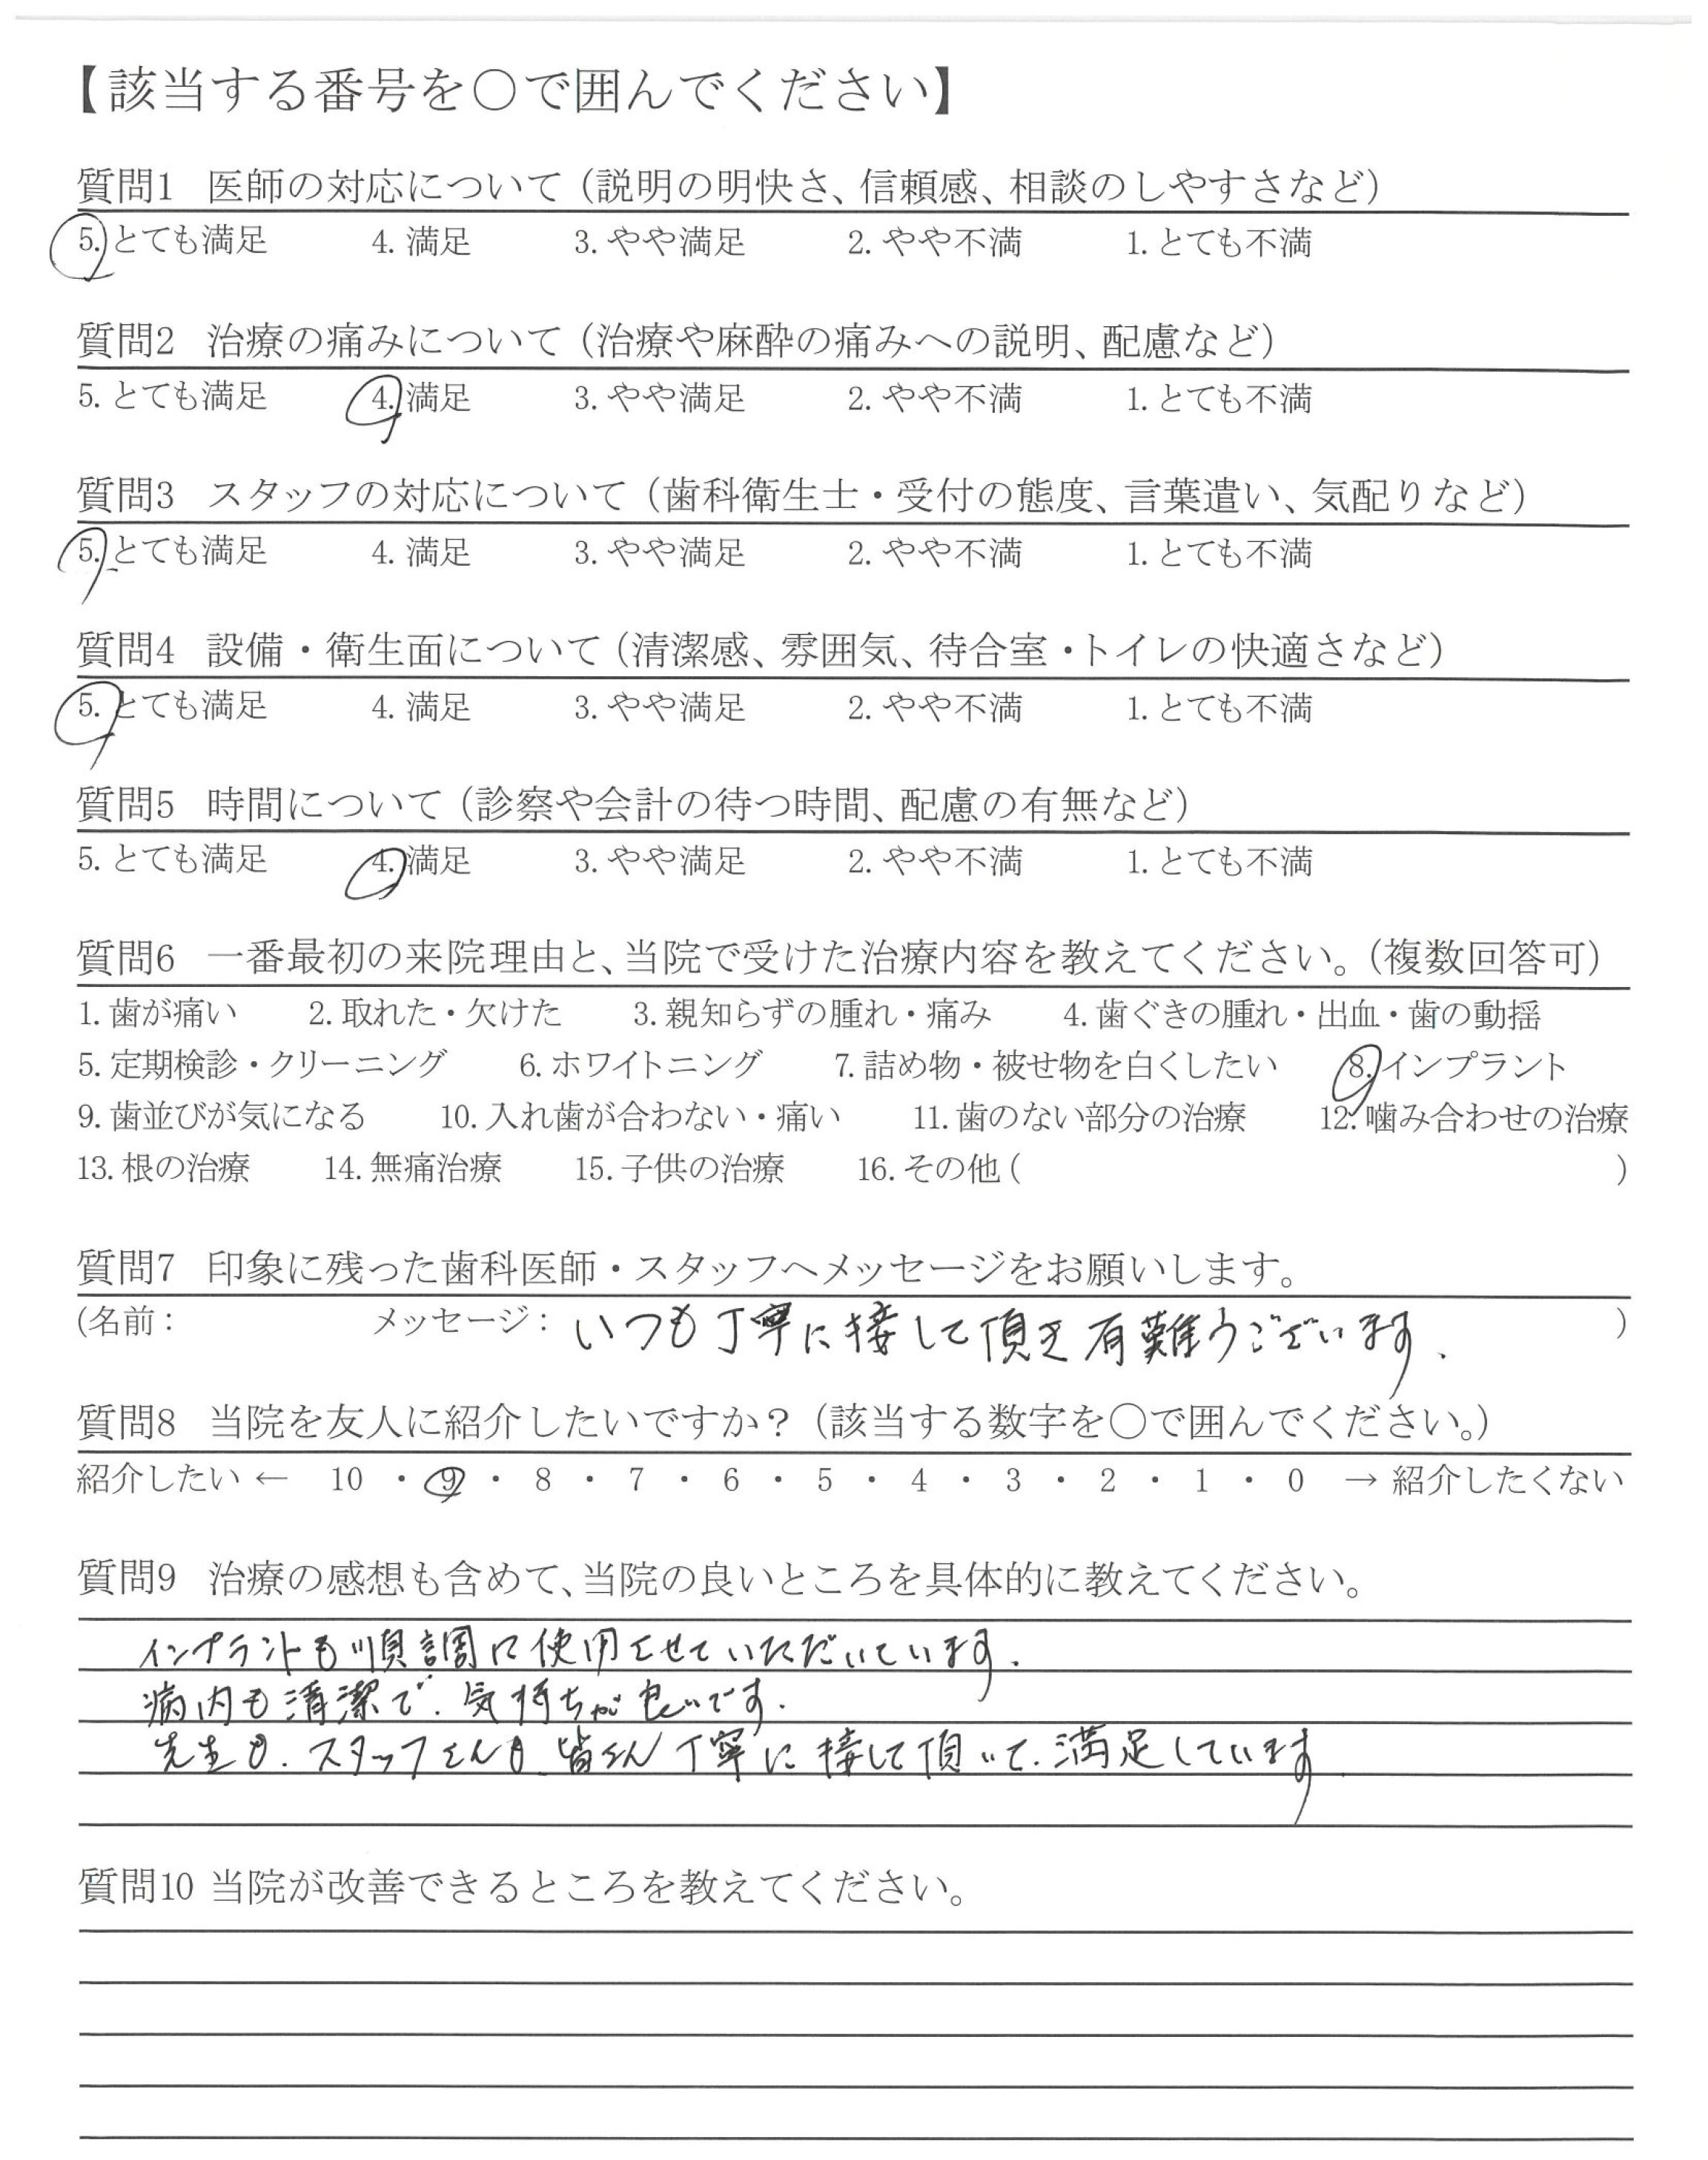 【該当する番号を○で囲んでください】
質問1 医師の対応について（説明の明快さ、信頼感、相談のしやすさなど）
5. とても満足 4. 満足 3. やや満足 2. やや不満 1. とても不満
質問2 治療の痛みについて（治療や麻酔の痛みへの説明、配慮など）
5. とても満足 4. 満足 3. やや満足 2. やや不満 1. とても不満
質問3 スタッフの対応について（歯科衛生士・受付の態度、言葉遣い、気配りなど）
5. とても満足 4. 満足 3. やや満足 2. やや不満 1. とても不満
質問4 設備・衛生面について（清潔感、雰囲気、待合室・トイレの快適さなど）
5. とても満足 4. 満足 3. やや満足 2. やや不満 1. とても不満
質問5 時間について（診察や会計の待つ時間、配慮の有無など）
5. とても満足 4. 満足 3. やや満足 2. やや不満 1. とても不満
質問6 一番最初の来院理由と、当院で受けた治療内容を教えてください。（複数回答可）
1. 歯が痛い 2. 取れた・欠けた 3. 親知らずの腫れ・痛み 4. 歯ぐきの腫れ・出血・歯の動揺
5. 定期検診・クリーニング 6. ホワイトニング 7. 詰め物・被せ物を白くしたい 8. インプラント
9. 歯並びが気になる 10. 入れ歯が合わない・痛い 11. 歯のない部分の治療 12. 噛み合わせの治療
13. 根の治療 14. 無痛治療 15. 子供の治療 16. その他（ ）
質問7 印象に残った歯科医師・スタッフへメッセージをお願いします。
（名前： メッセージ： いつも丁寧に接して頂き有難うございます. ）
質問8 当院を友人に紹介したいですか？（該当する数字を○で囲んでください。）
紹介したい ← 10 ・ 9 ・ 8 ・ 7 ・ 6 ・ 5 ・ 4 ・ 3 ・ 2 ・ 1 ・ 0 → 紹介したくない
質問9 治療の感想も含めて、当院の良いところを具体的に教えてください。
インプラントも順調に使用させていただいています.
病内も清潔で. 気持ちが良いです.
先生も. スタッフさんも. 皆さん丁寧に接して頂いて. 満足しています.
質問10 当院が改善できるところを教えてください。